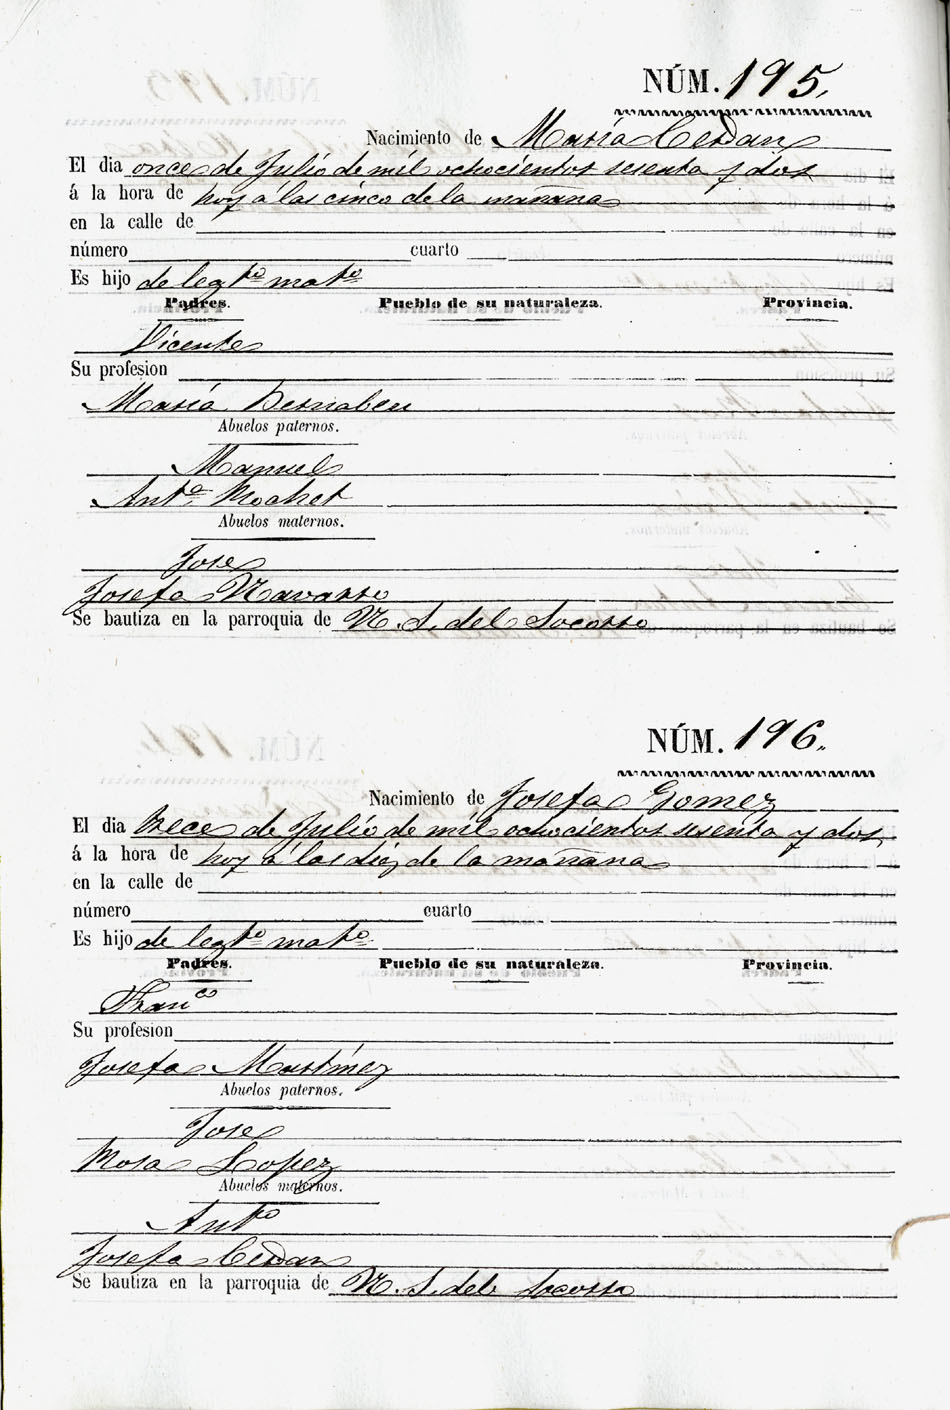 NÚM. 195.
Nacimiento de María Cerdan
El dia once de Julio de mil ochocientos sesenta y dos
á la hora de hoy á las cinco de la mañana
en la calle de
número cuarto
Es hijo de legto mato
Padres. Pueblo de su naturaleza. Provincia.
Vicente
Su profesion
María Bernabeu
Abuelos paternos.
Manuel
Anta Rochet
Abuelos maternos.
Jose
Josefa Navarro
Se bautiza en la parroquia de N. S. del Socorro
NÚM. 196.
Nacimiento de Josefa Gomez
El dia trece de Julio de mil ochocientos sesenta y dos,
á la hora de hoy á las diez de la mañana
en la calle de
número cuarto
Es hijo de legto mato
Padres. Pueblo de su naturaleza. Provincia.
Franco
Su profesion
Josefa Martínez
Abuelos paternos.
Jose
Rosa Lopez
Abuelos maternos.
Anto
Josefa Cerdan
Se bautiza en la parroquia de N. S. del Socorro